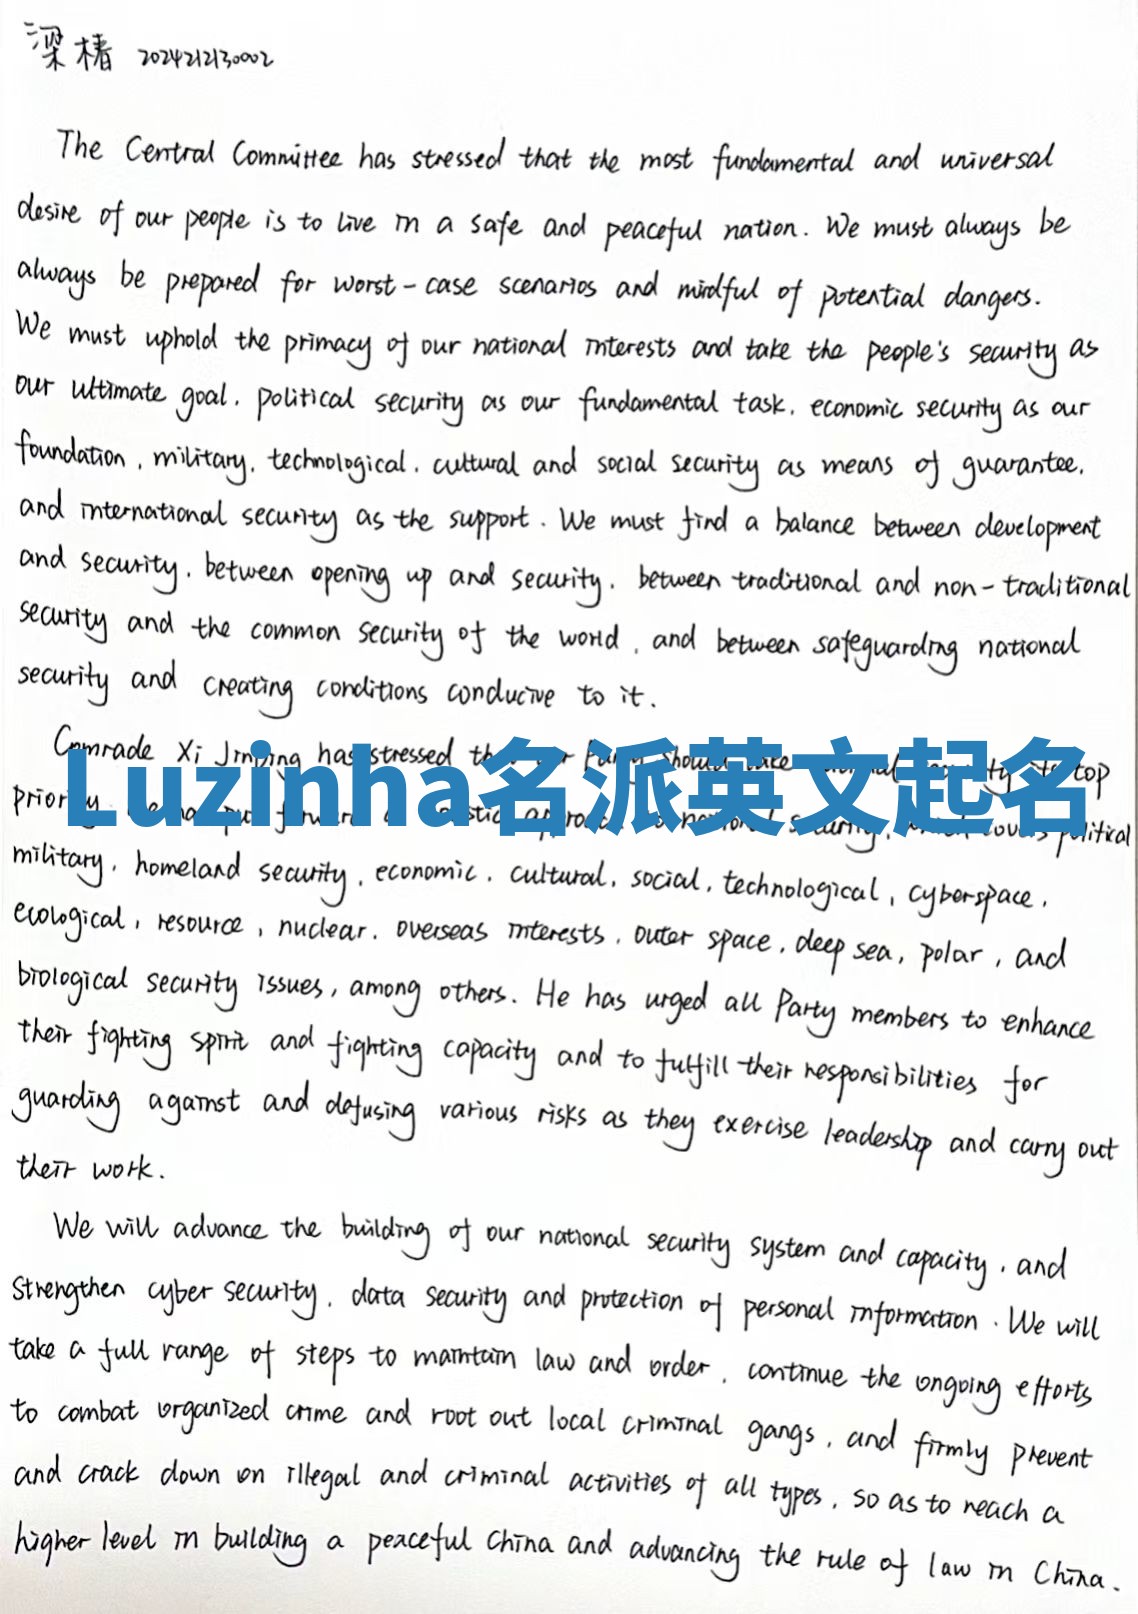 梁椿 2024212130002
The Central Committee has stressed that the most fundamental and universal
desire of our people is to live in a safe and peaceful nation. We must always be
always be prepared for worst-case scenarios and mindful of potential dangers.
We must uphold the primacy of our national interests and take the people's security as
our ultimate goal, political security as our fundamental task, economic security as our
foundation, military, technological, cultural and social security as means of guarantee,
and international security as the support. We must find a balance between development
and security, between opening up and security, between traditional and non-traditional
security and the common security of the world, and between safeguarding national
security and creating conditions conducive to it.
Comrade Xi Jinping has stressed
Luzinha名派英文起名
top
political
military, homeland security, economic, cultural, social, technological, cyberspace,
ecological, resource, nuclear, overseas interests, outer space, deep sea, polar, and
biological security issues, among others. He has urged all Party members to enhance
their fighting spirit and fighting capacity and to fulfill their responsibilities for
guarding against and defusing various risks as they exercise leadership and carry out
their work.
We will advance the building of our national security system and capacity, and
strengthen cyber security, data security and protection of personal information. We will
take a full range of steps to maintain law and order, continue the ongoing efforts
to combat organized crime and root out local criminal gangs, and firmly prevent
and crack down on illegal and criminal activities of all types, so as to reach a
higher level in building a peaceful China and advancing the rule of law in China.